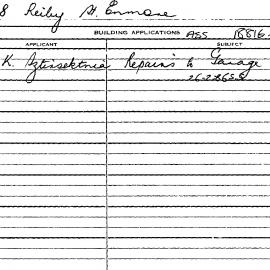 8 Reiby St. Enmore
BUILDING APPLICATIONS ASS 18816
APPLICANT SUBJECT
K. Repairs to Garage